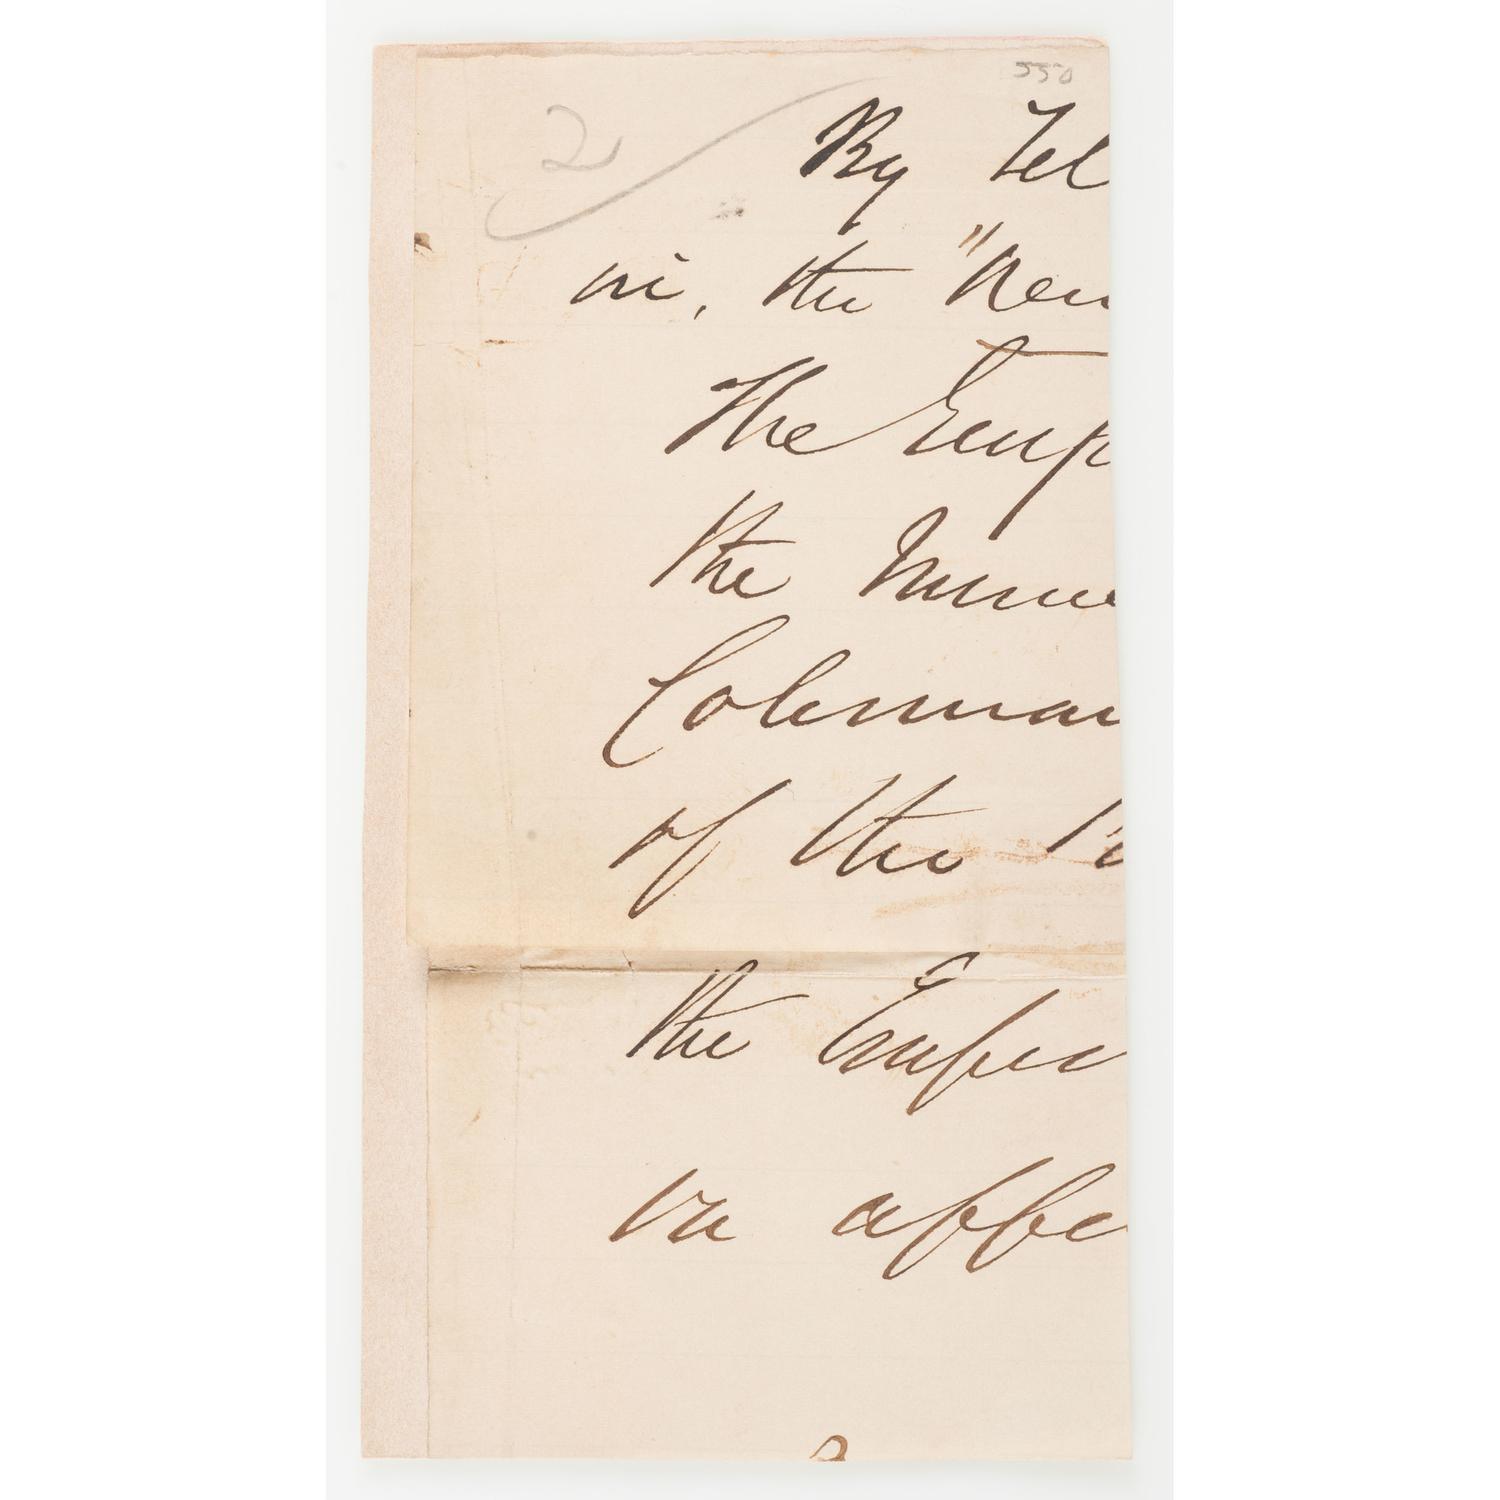 550
2
By Tel
in, the "New
The Emp
the
Colemna
of the
the Emper
in appe